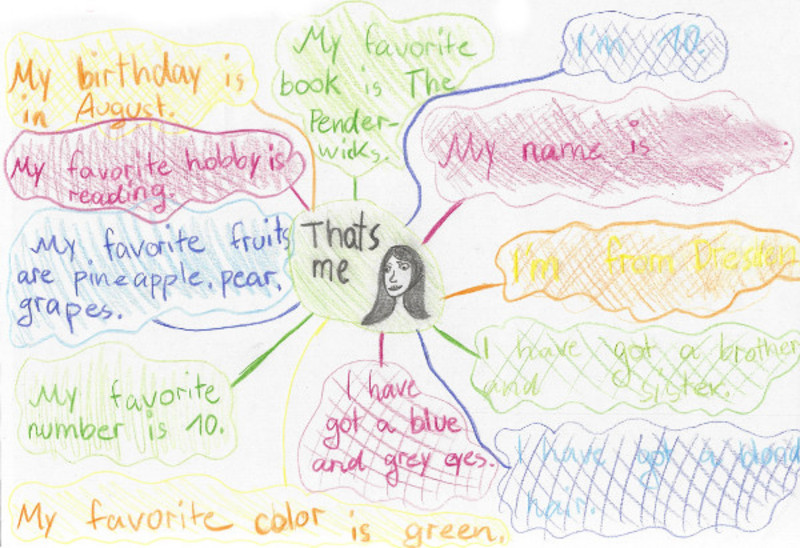 My favorite
book is The
Pender-
wicks.
I'm 10.
My birthday is
in August.
My name is
My favorite hobby is
reading.
Thats
me
My favorite fruits
are pineapple, pear,
grapes.
I'm from Dresden
I have got a brother
and sister.
My favorite
number is 10.
I have
got a blue
and grey eyes.
I have got a blond
hair.
My favorite color is green.